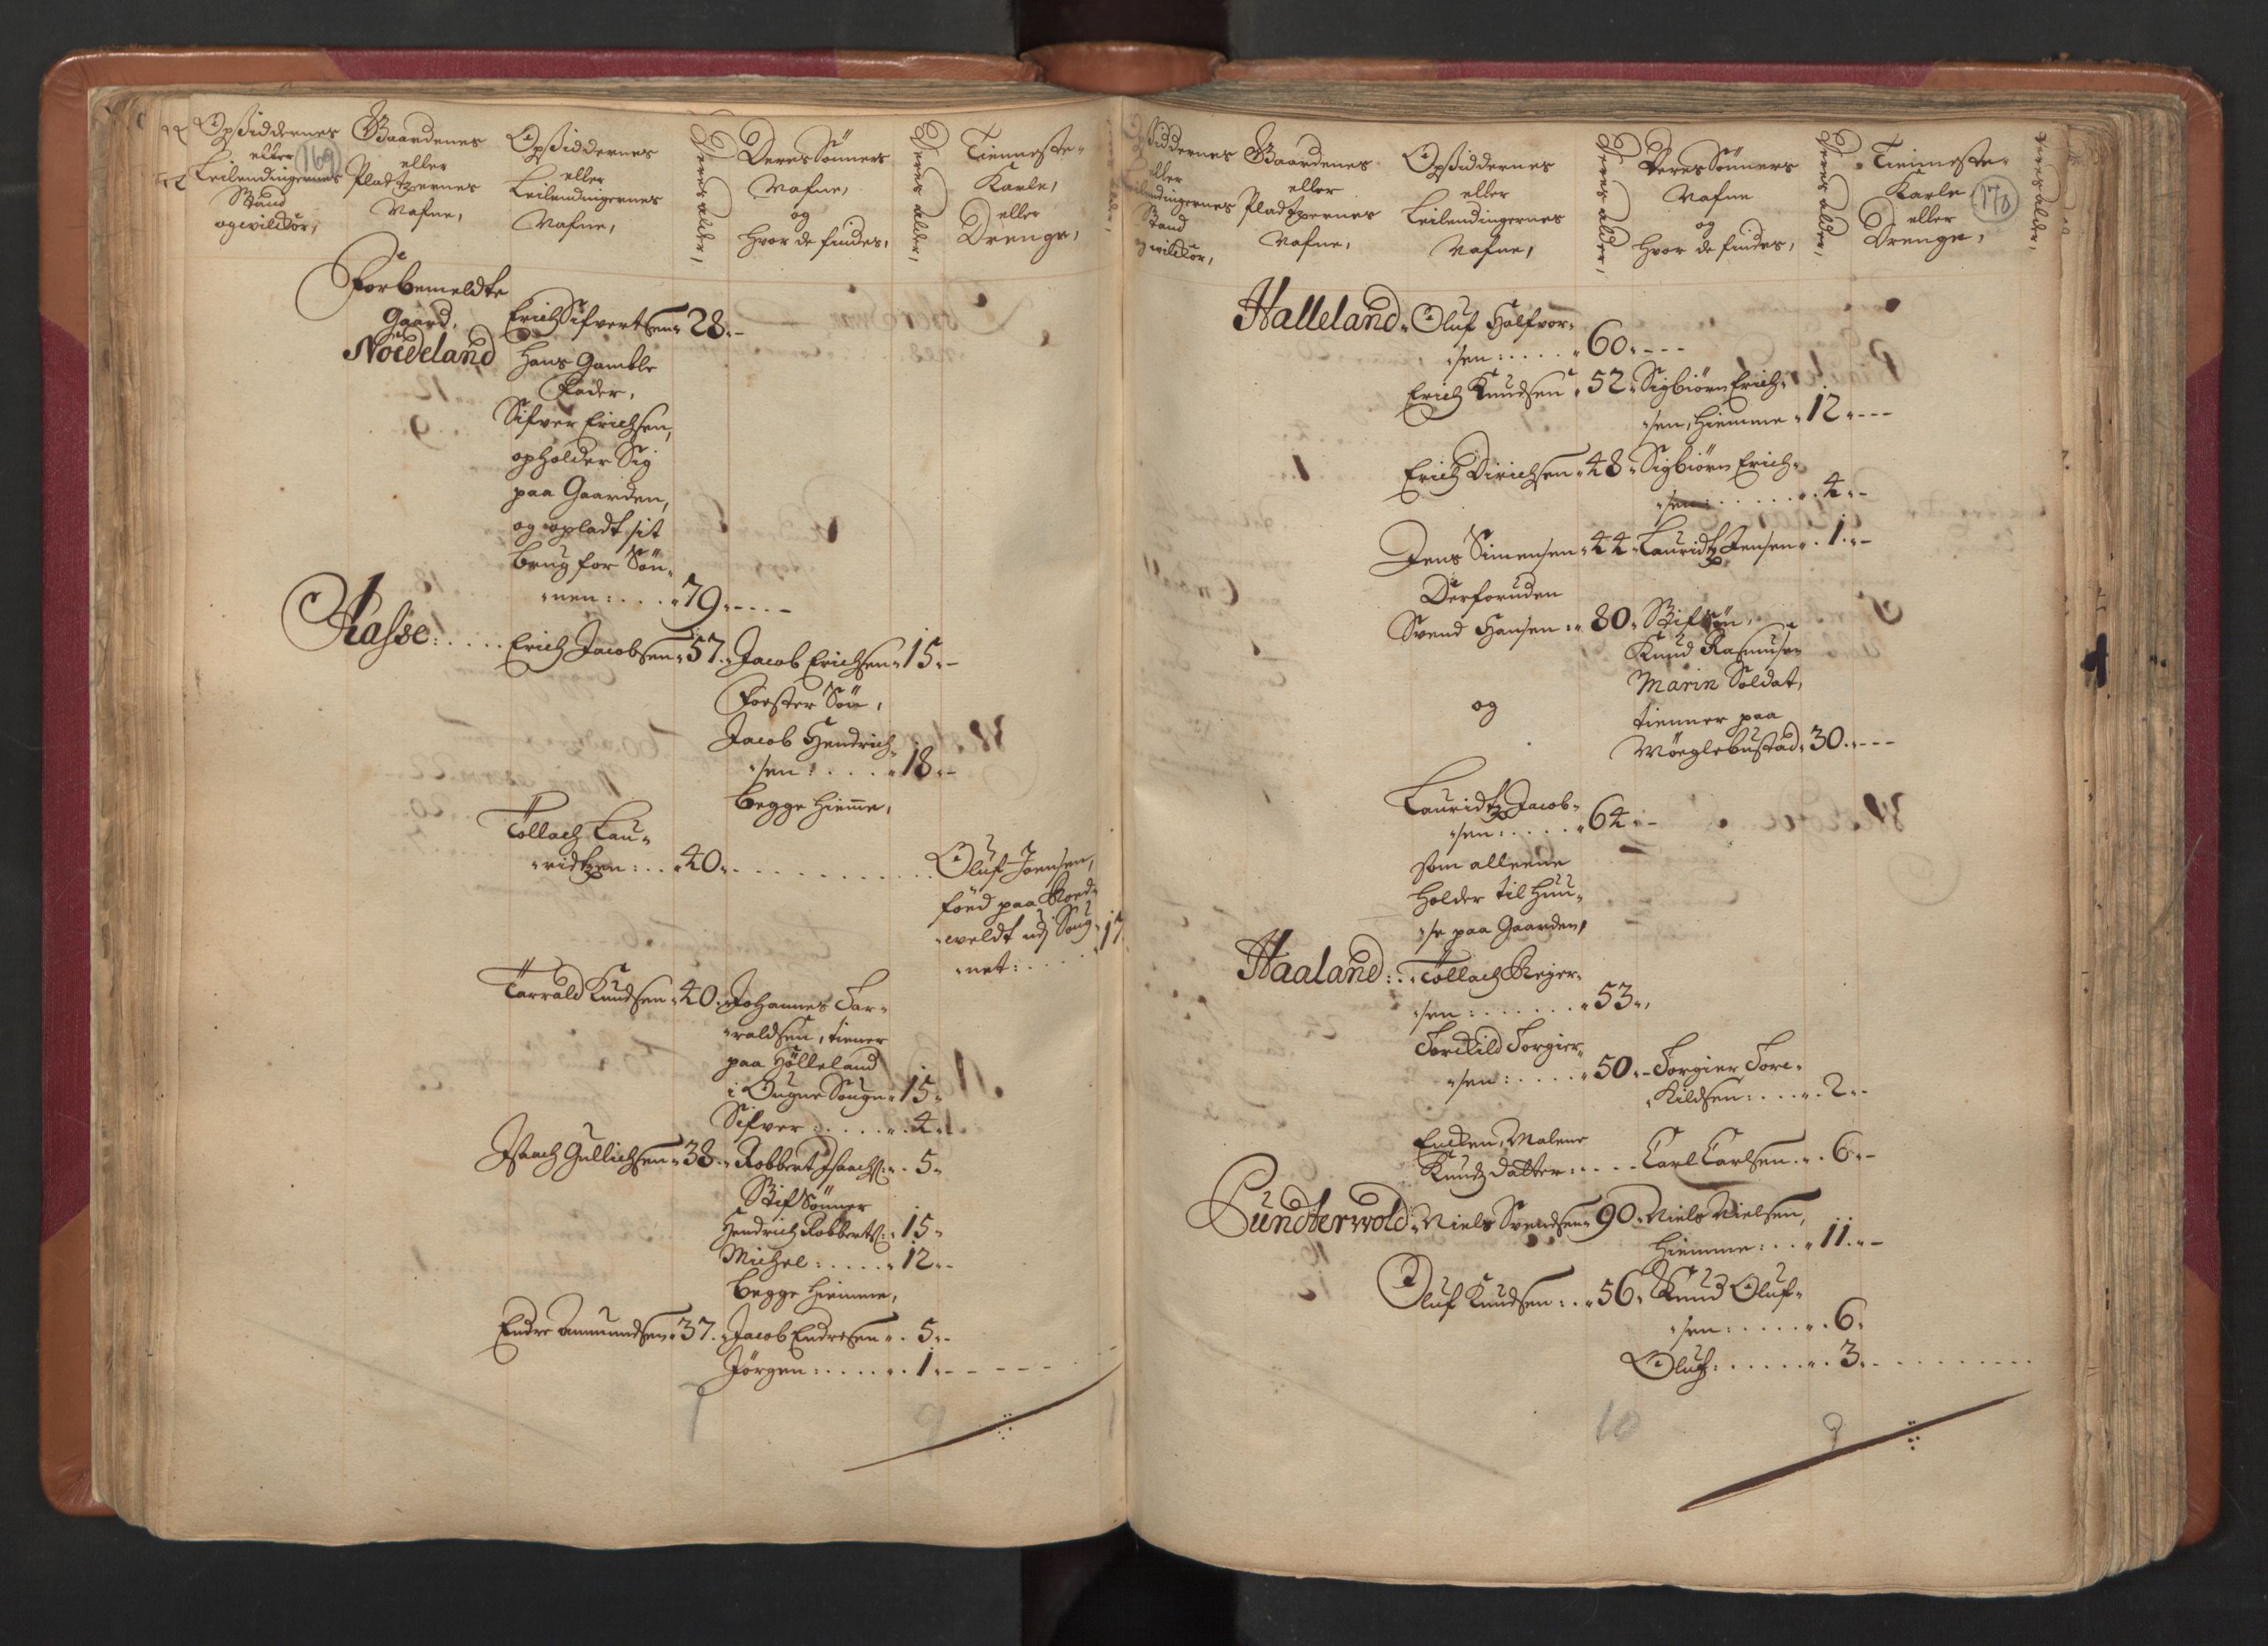 Opsiddernes
eller
Leilendingernes
Stand
og wilckor,
169
Gaardenes
eller
Pladtzernes
Nafne,
Opsiddernes
eller
Leilendingernes
Nafne,
Deres alder,
Deres Sönners
Nafne,
og
hvor de findes,
Deres alder,
Tienneste-
Karle,
eller
Drenge,
Forbemeldte
Gaard,
Nordeland
Erich Sifvertsen 28.
Hans Gamble
Fader,
Sifver Erichsen,
opholder Sig
paa Gaarden,
og opladt sit
brug for Sön-
nen: . . . 79.
Erich Jacobsen 57. Jacob Erichsen 15.
Foster Sön,
Jacob Hendrich-
sen: . . . . 18.
begge hieme,
Tollach Lau-
ridtzen: . . 40. Oluf Joensen,
föed paa
udj Sog- 17
net: . . . .
Tarrald Knudsen 40. Johannes Tar-
raldsen, tiener
paa Hölleland
i Ougne Sougn 15.
Sifver: . . . . 4.
Isaach Gullichsen 38. Robbert Isaachs: 5.
Stif Sönner
Hendrich Robberts: 15.
Michel: . . . . . 12.
begge hiemme,
Endre Ammundsen 37. Jacob Endresen . 5.
Jörgen: . . . . . 1.
7 9 1
Opsiddernes
eller
Leilendingernes
Stand
og wilckor,
Gaardenes
eller
Pladtzernes
Nafne,
Opsiddernes
eller
Leilendingernes
Nafne,
Deres alder,
Deres Sönners
Nafne
og
hvor de findes,
Deres alder,
Tienneste-
Karle
eller
Drenge,
170
Deres alder,
Halleland. Oluf Halfvor-
sen: . . . . 60.
Erich Knudsen 52. Sigbiörn Erich-
sen, hiemme 12.
Erich Dirichsen 48. Sigbiörn Erich-
sen: . . . . . . 4.
Jens Simensen 44. Lauridtz Jensen . 1.
Derforuden
Svend Hansen: 80. Stifsön,
Knud Rasmusen
Marin Soldat,
og
tienner paa
Wöeglebustad 30.
Lauridtz Jacob-
sen: . . . . . 64.
som alleene
holder til huu-
se paa Gaarden,
Haaland: . . Tollach Rejer-
sen: . . . . . . 53.
Torckild Torgier-
sen: . . . . 50. Torgier Torc-
kildsen: . . . . 2.
Encken, Malene
Knudz datter: . . . . Carl Carlsen. . 6.
Niels Svendsen 90. Niels Nielsen,
hiemme: . . . 11.
Oluf Knudsen: . . 56. Knud Oluf-
sen: . . . . . 6.
Oluf: . . . . . . 3.
10 9